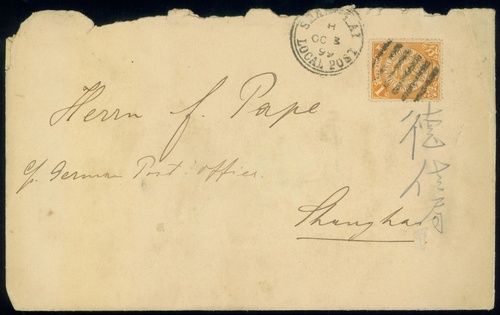 SHANGHAI
H
OC 3
99
LOCAL POST
1
Herrn f. Pape
c/o German Post Office.
Shanghai